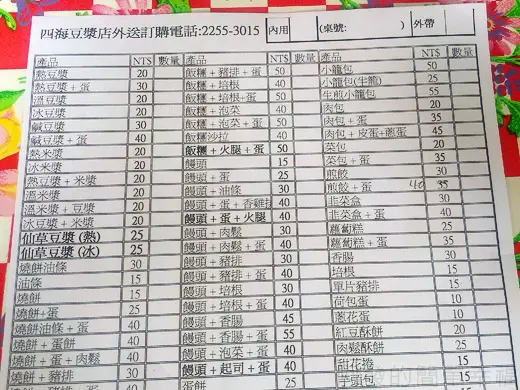 四海豆漿店外送訂購電話:2255-3015 內用 (桌號: ) 外帶
產品 NT$ 數量 產品 NT$ 數量 產品 NT$ 數量
熱豆漿 20 飯糰+豬排+蛋 50 小籠包 50
熱豆漿+蛋 30 飯糰+培根 40 小籠包(生籠) 25
溫豆漿 20 飯糰+培根+蛋 50 生煎小籠包 55
冰豆漿 20 飯糰+泡菜 40 肉包 20
鹹豆漿 30 飯糰+泡菜+蛋 50 肉包+蛋 35
鹹豆漿+蛋 40 飯糰沙拉 40 肉包+皮蛋+煎蛋 45
熱米漿 20 飯糰+火腿+蛋 50 菜包 20
冰米漿 20 饅頭 15 菜包+蛋 35
熱豆漿+米漿 20 饅頭+蛋 25 煎餃 30
溫米漿 20 饅頭+油條 30 煎餃+蛋 40 35
溫米漿+豆漿 20 饅頭+蛋+香雞排 40 韭菜盒 30
冰豆漿+米漿 20 饅頭+蛋+火腿 40 韭菜盒+蛋 40
仙草豆漿(熱) 25 饅頭+肉鬆 30 蘿蔔糕 25
仙草豆漿(冰) 25 饅頭+肉鬆+蛋 40 蘿蔔糕+蛋 35
燒餅油條 30 饅頭+豬排 30 香腸 30
油條 15 饅頭+豬排+蛋 40 培根 15
燒餅 15 饅頭+培根 30 單片豬排 15
燒餅+蛋 25 饅頭+培根+蛋 40 荷包蛋 10
燒餅油條+蛋 40 饅頭+香腸 45 蔥花蛋 10
燒餅+蛋餅 40 饅頭+香腸+蛋 55 紅豆酥餅 20
燒餅+蛋+肉鬆 40 饅頭+泡菜+蛋 40 肉鬆酥餅 25
燒餅+豬排 30 饅頭+起司+蛋 40 甜花捲 15
蛋餅 25 芋頭包 15